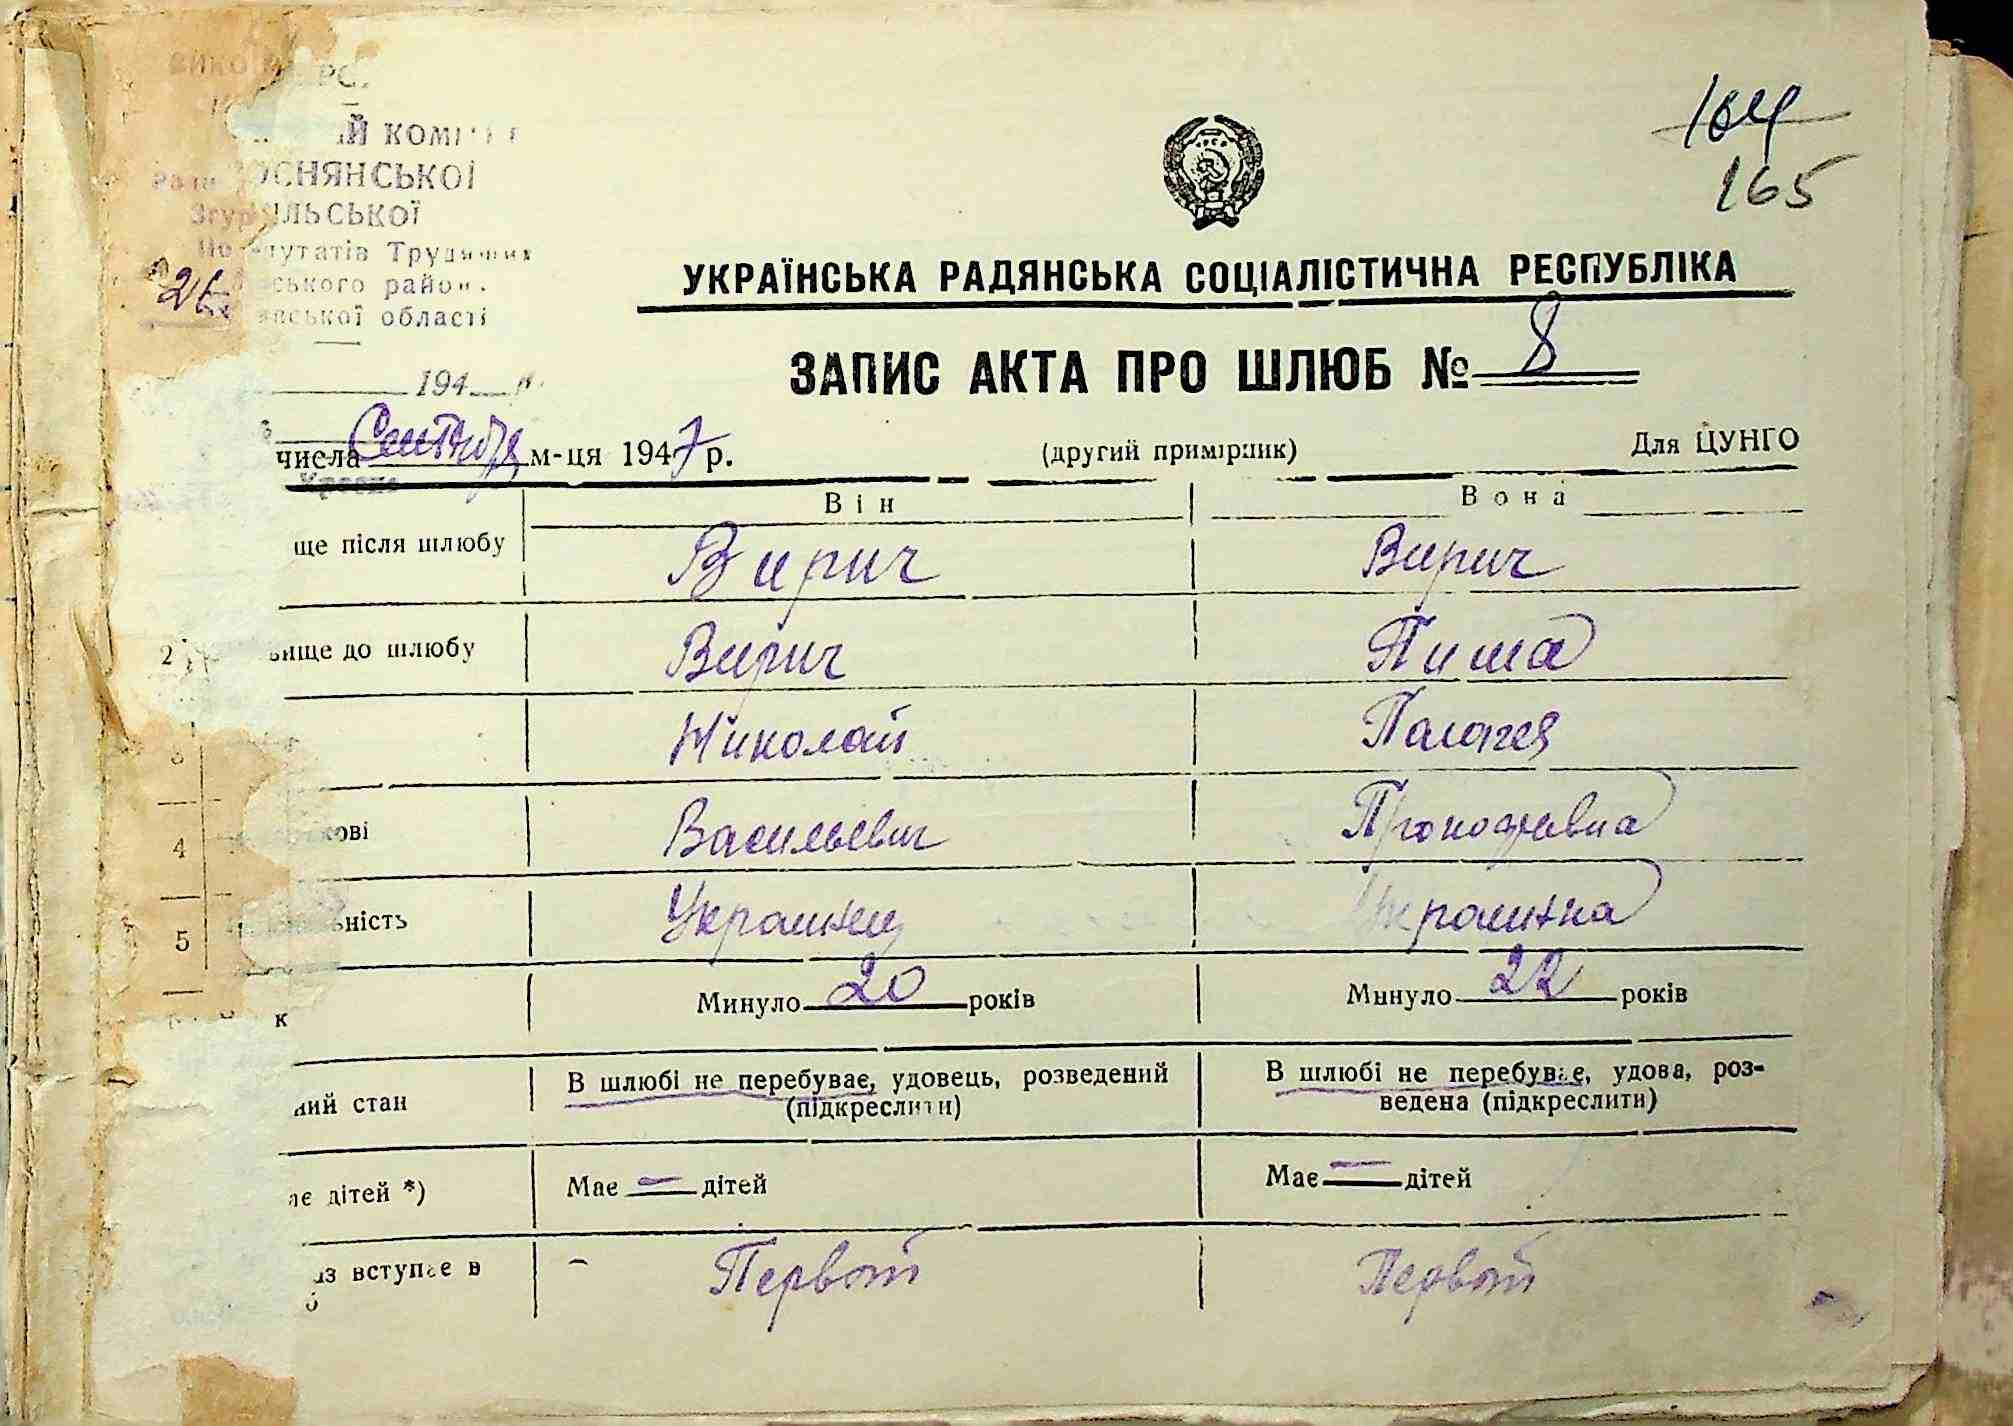 164
165
ОСНЯНСЬКОЇ
ЛЬСЬКОЇ
путатів Трудящих
ського район.
вської області
194
УКРАЇНСЬКА РАДЯНСЬКА СОЦІАЛІСТИЧНА РЕСПУБЛІКА
ЗАПИС АКТА ПРО ШЛЮБ № 8
числа Сентябр м-ця 1947 р. (другий примірник) Для ЦУНГО
Він Вона
ще після шлюбу Вирич Вирич
2 вище до шлюбу Вирич Пиша
3 Николай Палагея
4 кові Васильевич Прокофьевна
5 ність Украинец Украинка
к Минуло 20 років Минуло 22 років
ний стан В шлюбі не перебуває, удовець, розведений В шлюбі не перебуває, удова, роз-
(підкреслити) ведена (підкреслити)
ає дітей *) Має — дітей Має — дітей
аз вступає в - Первый Первый